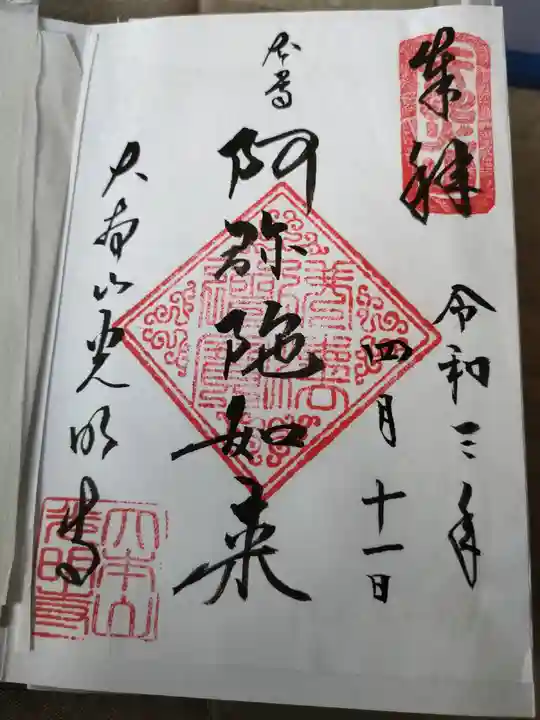 奉拝
令和三年
四月十一日
本尊
阿弥陀如来
大本山光明寺
大本山
光明寺